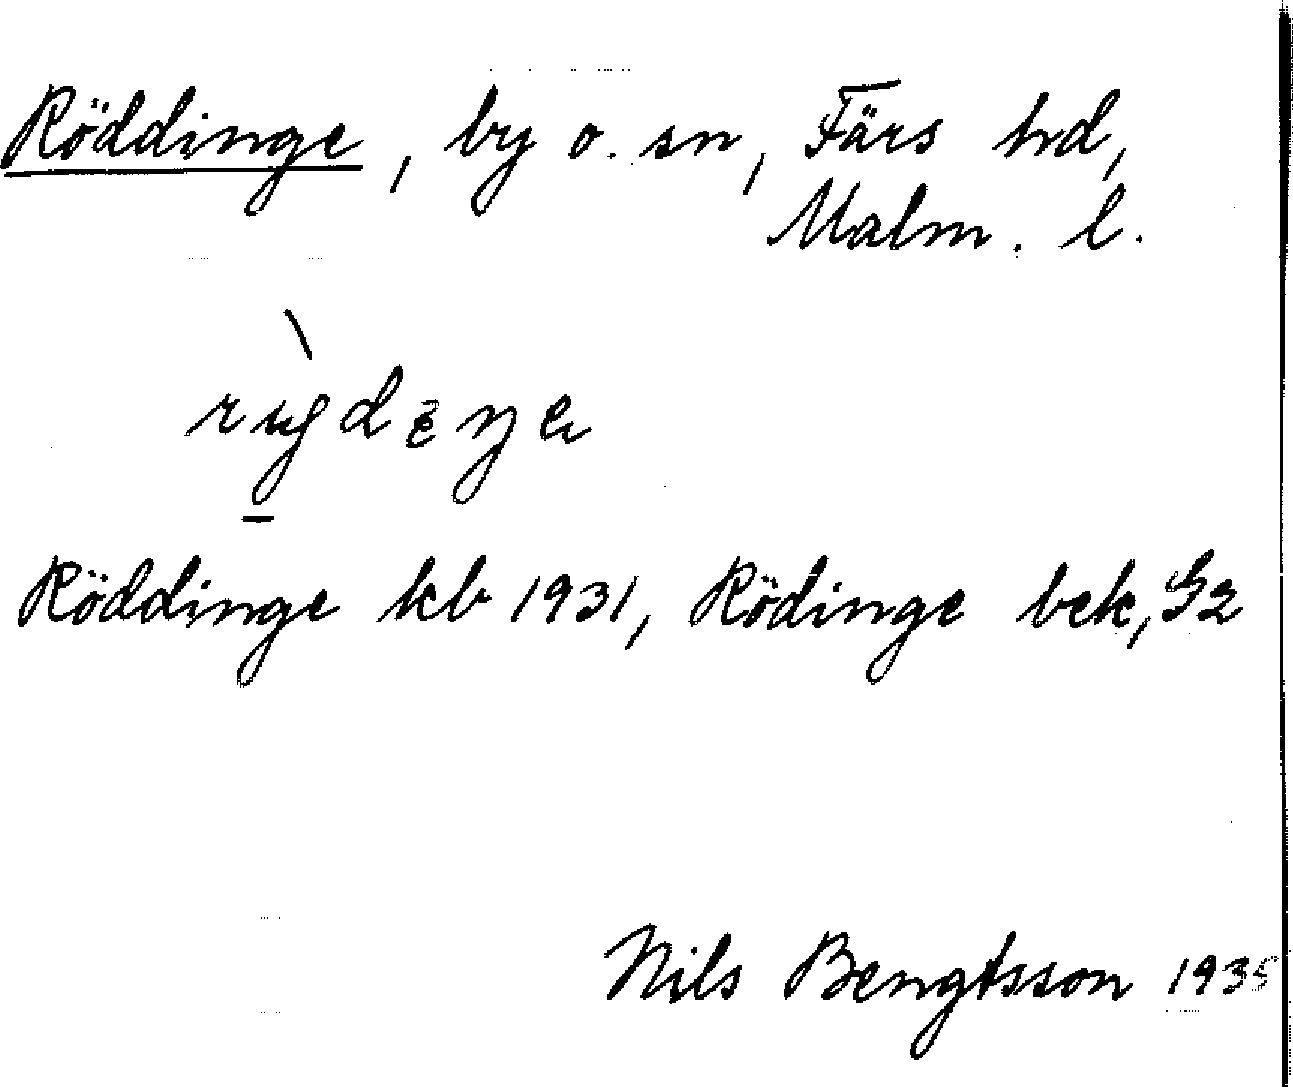 Röddinge, by o. sn, Färs hd,
Malm. l.
Röddinge kb 1931, Rödinge bek, S2
Nils Bengtsson 1935